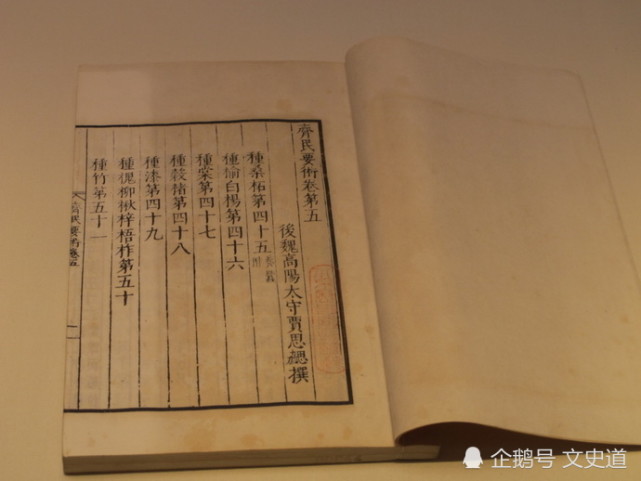 齊民要術卷第五
後魏高陽太守賈思勰撰
種桑柘第四十五 養蠶附
種榆白楊第四十六
種棠第四十七
種穀楮第四十八
種漆第四十九
種槐柳楸梓梧柞第五十
種竹第五十一
齊民要術卷五
一
企鹅号 文史道